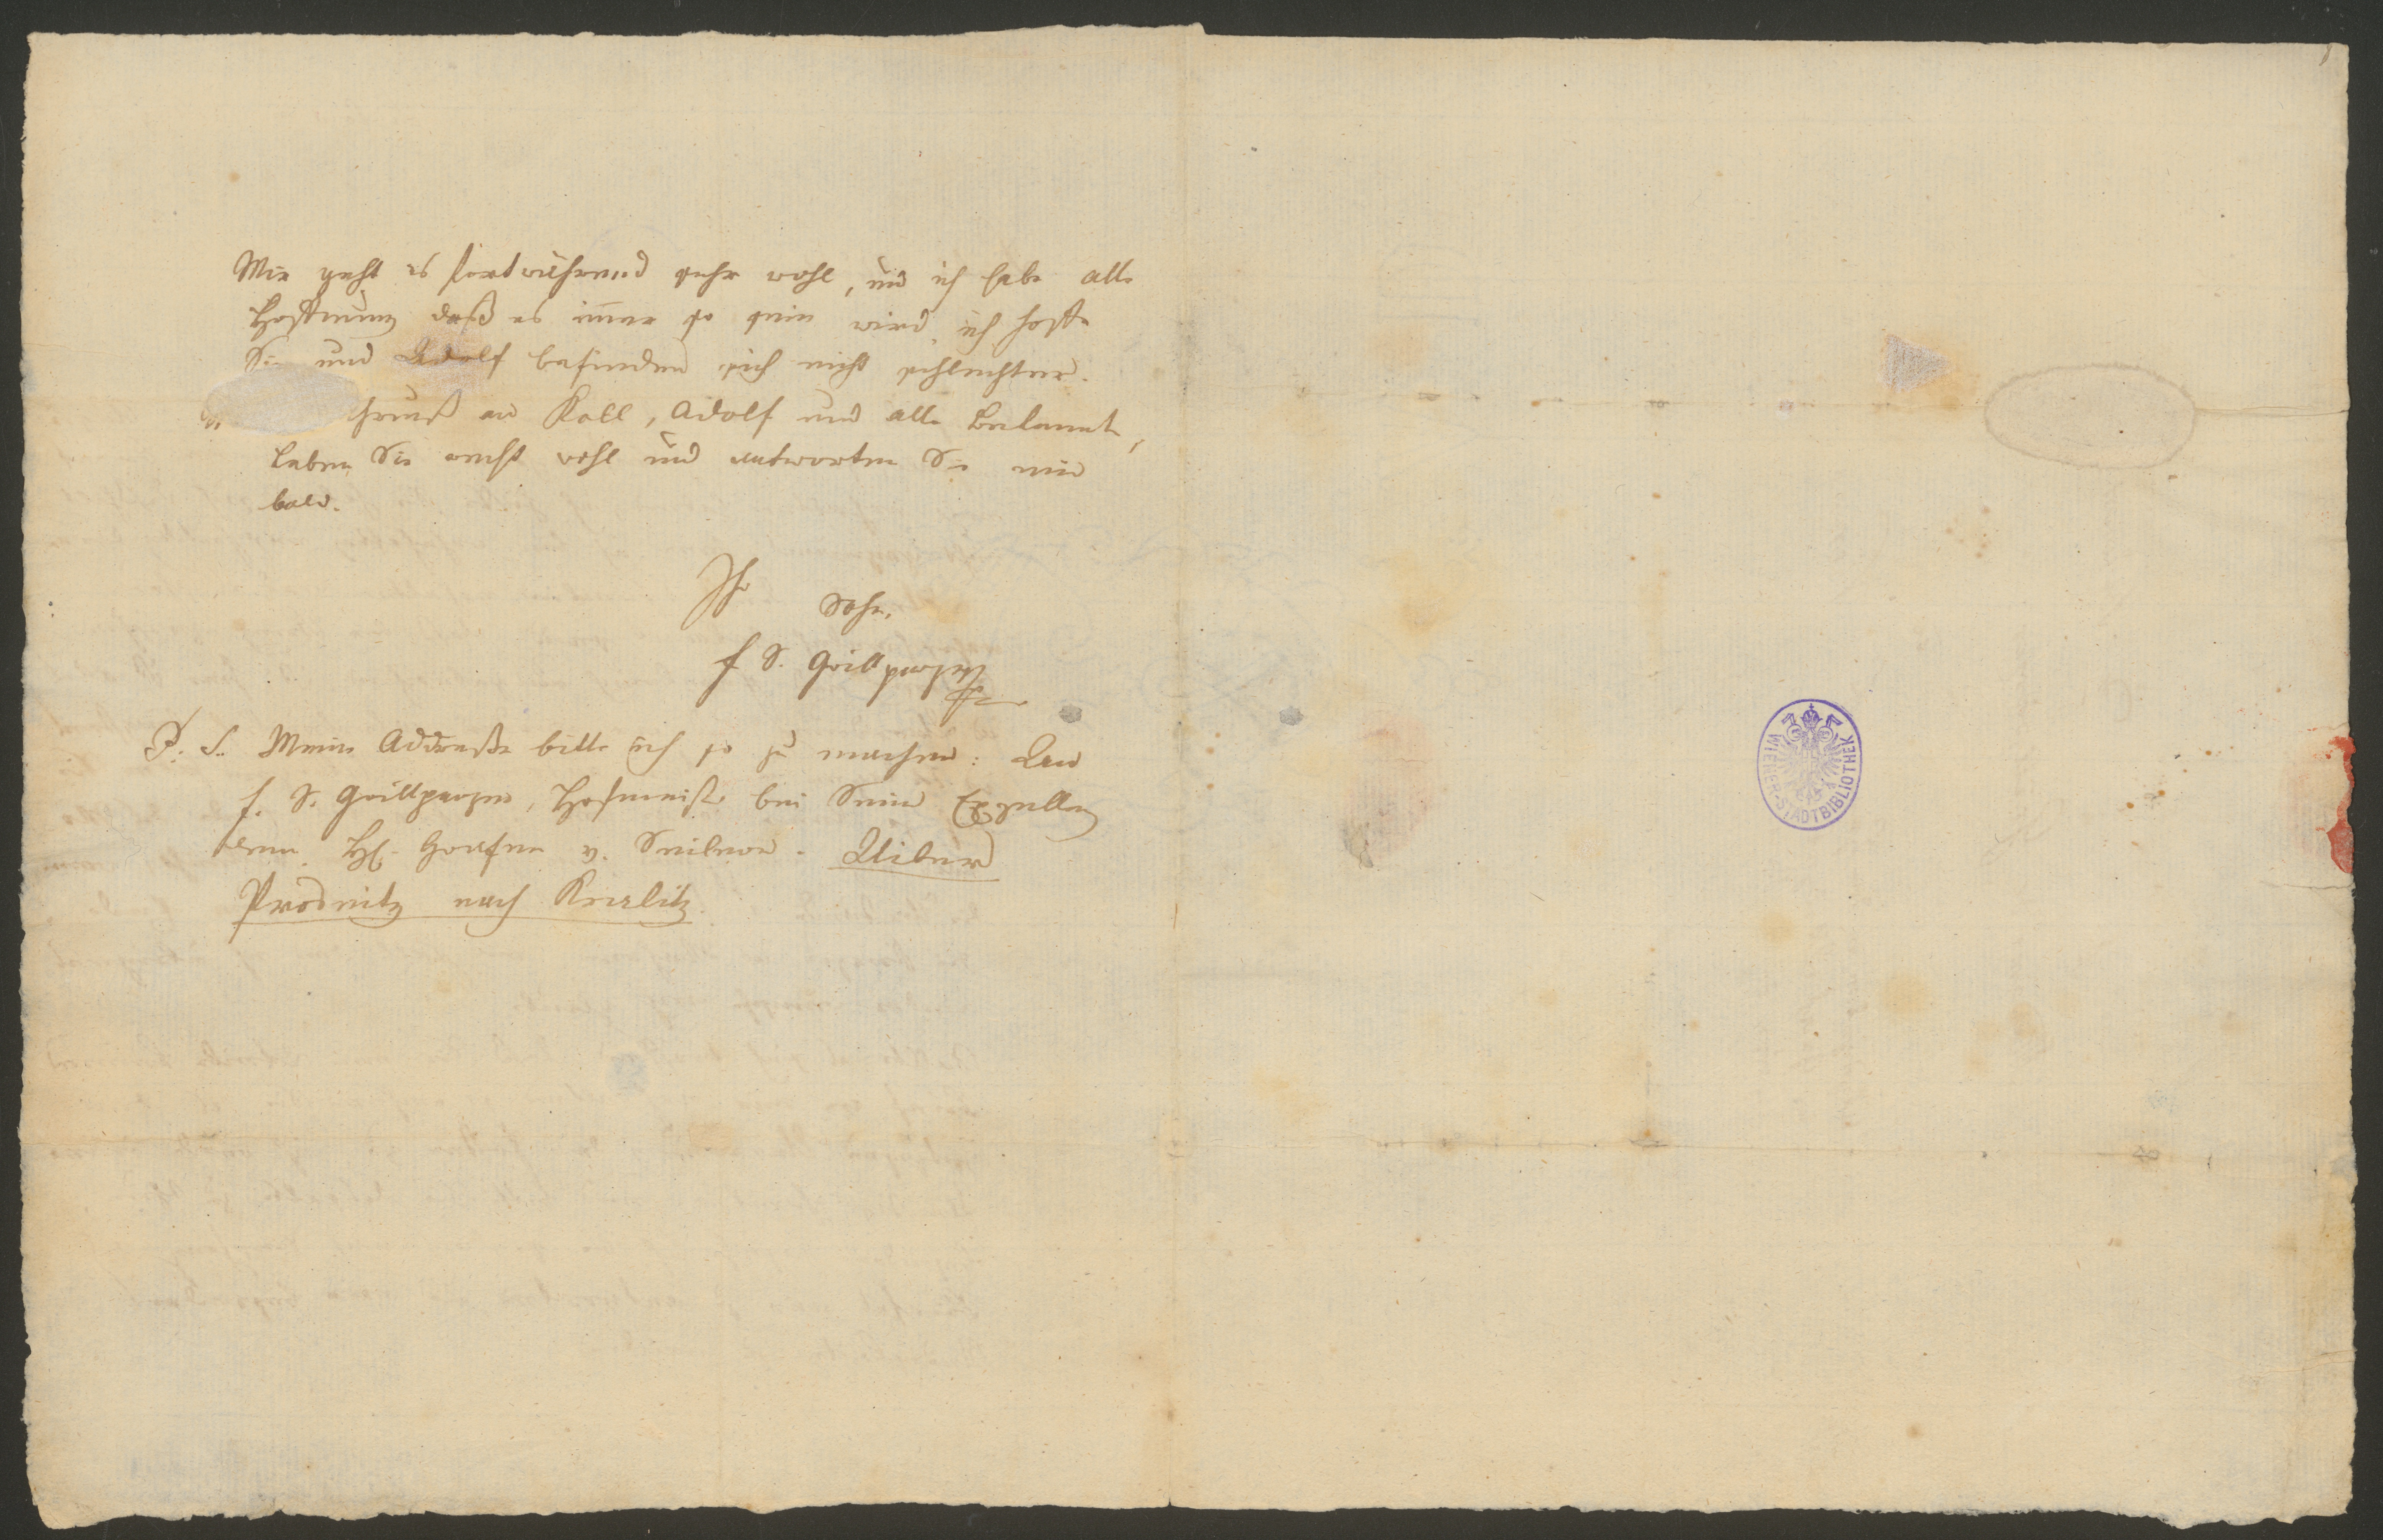 Mir geht es fortwährend sehr wohl, und ich habe alle
Hoffnung daß es im̅er so sein wird, ich hoffe
Sie und Adolf befinden sich nicht schlechter.
an Koll, Adolf und alle Bekannte,
leben Sie recht wohl und antworten Sie mir
bald.
Ihr Sohn,
F S. Grillparzer
P. S. Meine Addreße bitte ich so zu machen: An
F. S. Grillparzer, Hofmeister bei Seiner Exzellenz
dem H. Grafen v. Seilern. Uiber
Prosnitz nach Kralitz.
WIENER-STADTBIBLIOTHEK